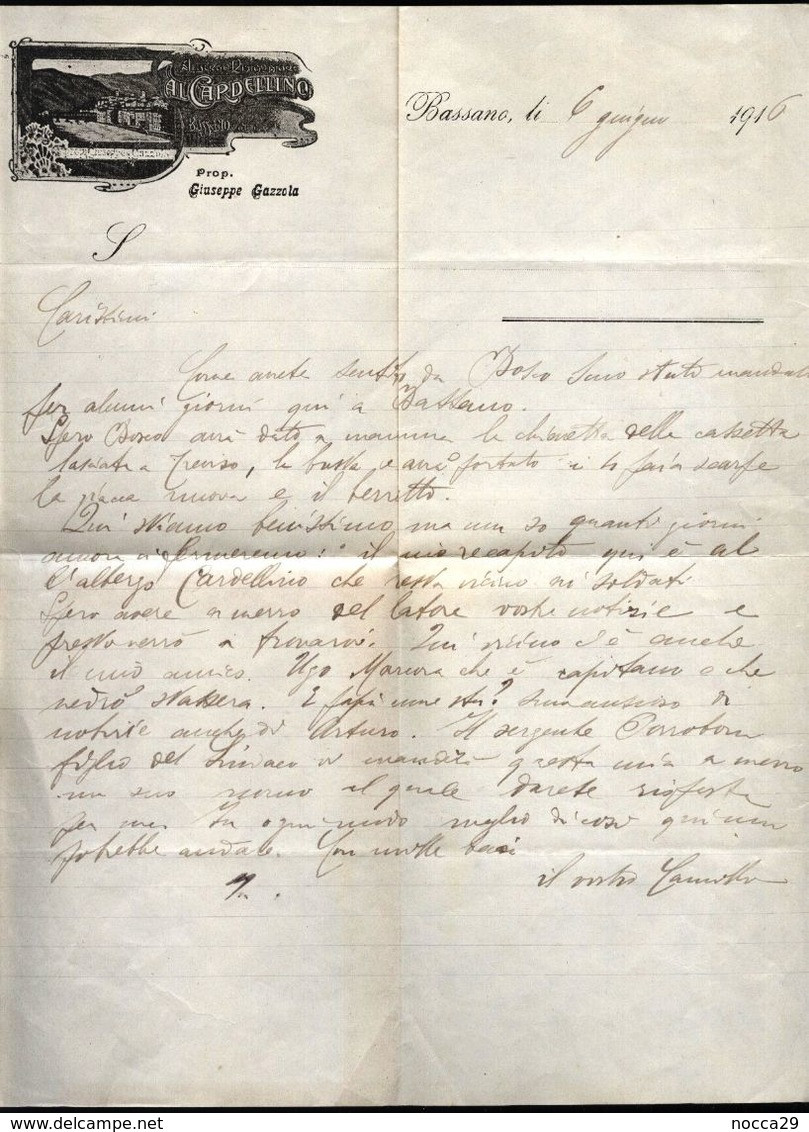 Albergo Ristorante
AL CARDELLINO
BASSANO
Prop. Giuseppe Gazzola
Prop.
Giuseppe Gazzola
Bassano, li 6 giugno 1916
S
Carissimi
Come avete sentito da Bosco sono stato mandato
per alcuni giorni qui a Bassano.
Spero Bosco avrà dato a mamma la chiavetta della cassetta
lasciata a Treviso, la busta e avrà portato i scarpe
la giacca nuova e il berretto.
Qui stiamo benissimo ma non so quanti giorni
ancora ci fermeremo: il mio recapito qui è al
l'albergo Cardellino che resta vicino ai soldati
Spero avere a mezzo del latore vostre notizie e
presto verrò a trovarvi. Qui vicino c'è anche
il mio amico Ugo che è capitano e che
vedrò stassera. E papà come sta? Sono ansioso di
notizie anche di Arturo. Il sergente
figlio del Sindaco vi manderà questa mia a mezzo
un suo uomo al quale darete risposta
per me. In ogni modo meglio di così qui non
potrebbe andare. Con molti baci
il vostro